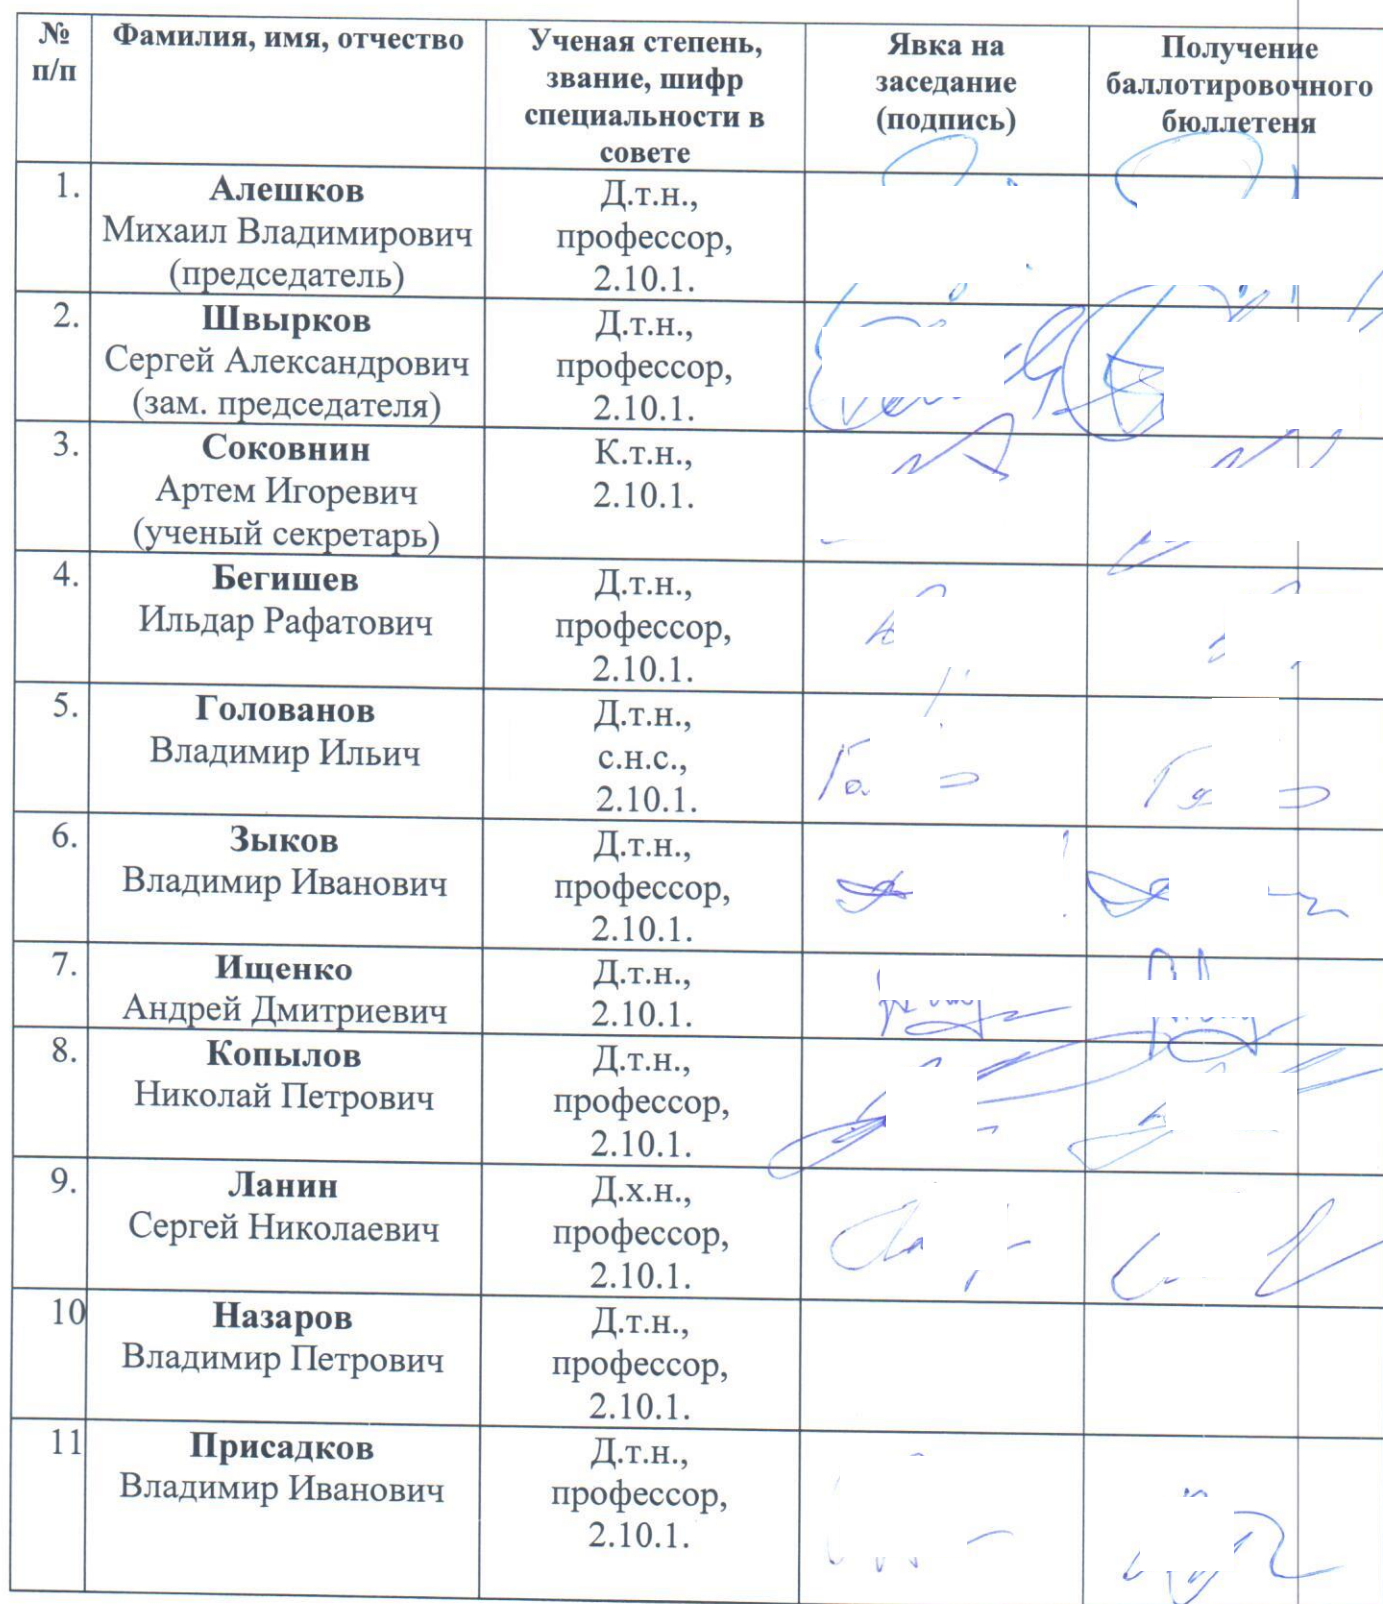 № п/п
Фамилия, имя, отчество
Ученая степень,
звание, шифр
специальности в
совете
Явка на
заседание
(подпись)
Получение
баллотировочного
бюллетеня
1.
Алешков
Михаил Владимирович
(председатель)
Д.т.н.,
профессор,
2.10.1.
2.
Швырков
Сергей Александрович
(зам. председателя)
Д.т.н.,
профессор,
2.10.1.
3.
Соковнин
Артем Игоревич
(ученый секретарь)
К.т.н.,
2.10.1.
4.
Бегишев
Ильдар Рафатович
Д.т.н.,
профессор,
2.10.1.
5.
Голованов
Владимир Ильич
Д.т.н.,
с.н.с.,
2.10.1.
6.
Зыков
Владимир Иванович
Д.т.н.,
профессор,
2.10.1.
7.
Ищенко
Андрей Дмитриевич
Д.т.н.,
2.10.1.
8.
Копылов
Николай Петрович
Д.т.н.,
профессор,
2.10.1.
9.
Ланин
Сергей Николаевич
Д.х.н.,
профессор,
2.10.1.
10
Назаров
Владимир Петрович
Д.т.н.,
профессор,
2.10.1.
11
Присадков
Владимир Иванович
Д.т.н.,
профессор,
2.10.1.